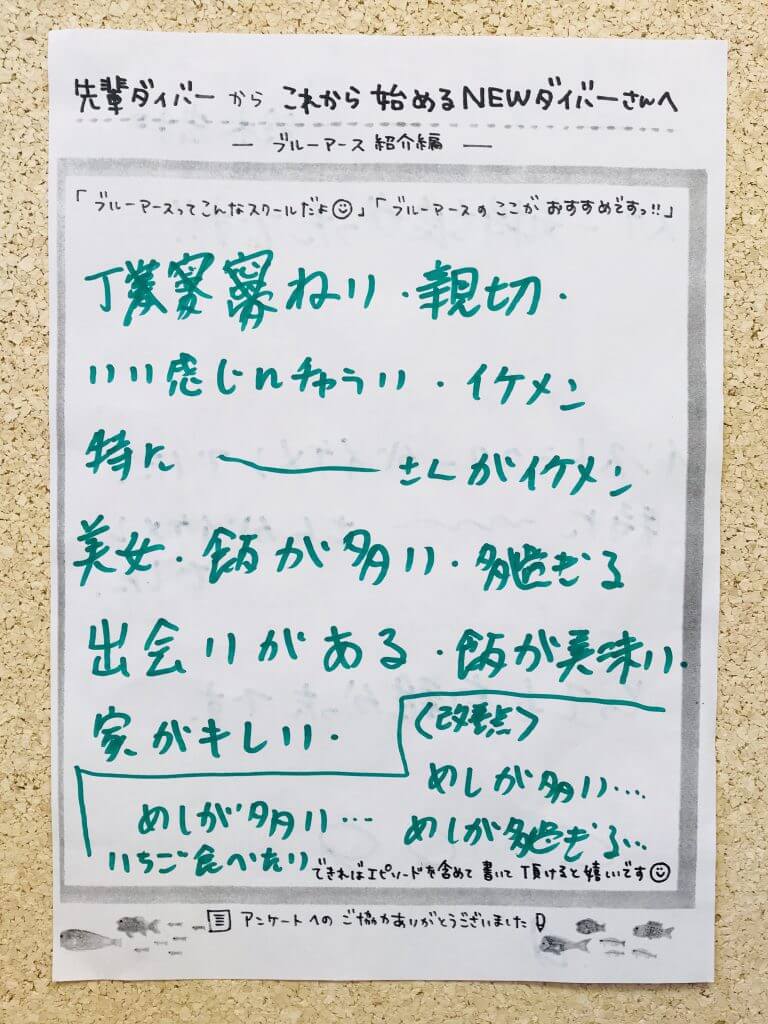 先輩ダイバーから これから始めるNEWダイバーさんへ
― ブルーアース紹介編 ―
「ブルーアースってこんなスクールだよ☺」「ブルーアースのここがおすすめですっ!!」
丁 ねい・親切・
いい感じ ・イケメン
特に ――― さんがイケメン
美女・飯が多い・多過ぎる
出会いがある・飯が美味い・
家がキレい・
〈改善点〉
めしが多い…
めしが多過ぎる…
めしが多い…
いちご食べたい
できればエピソードを含めて書いて頂けると嬉しいです☺
アンケートへのご協力ありがとうございました